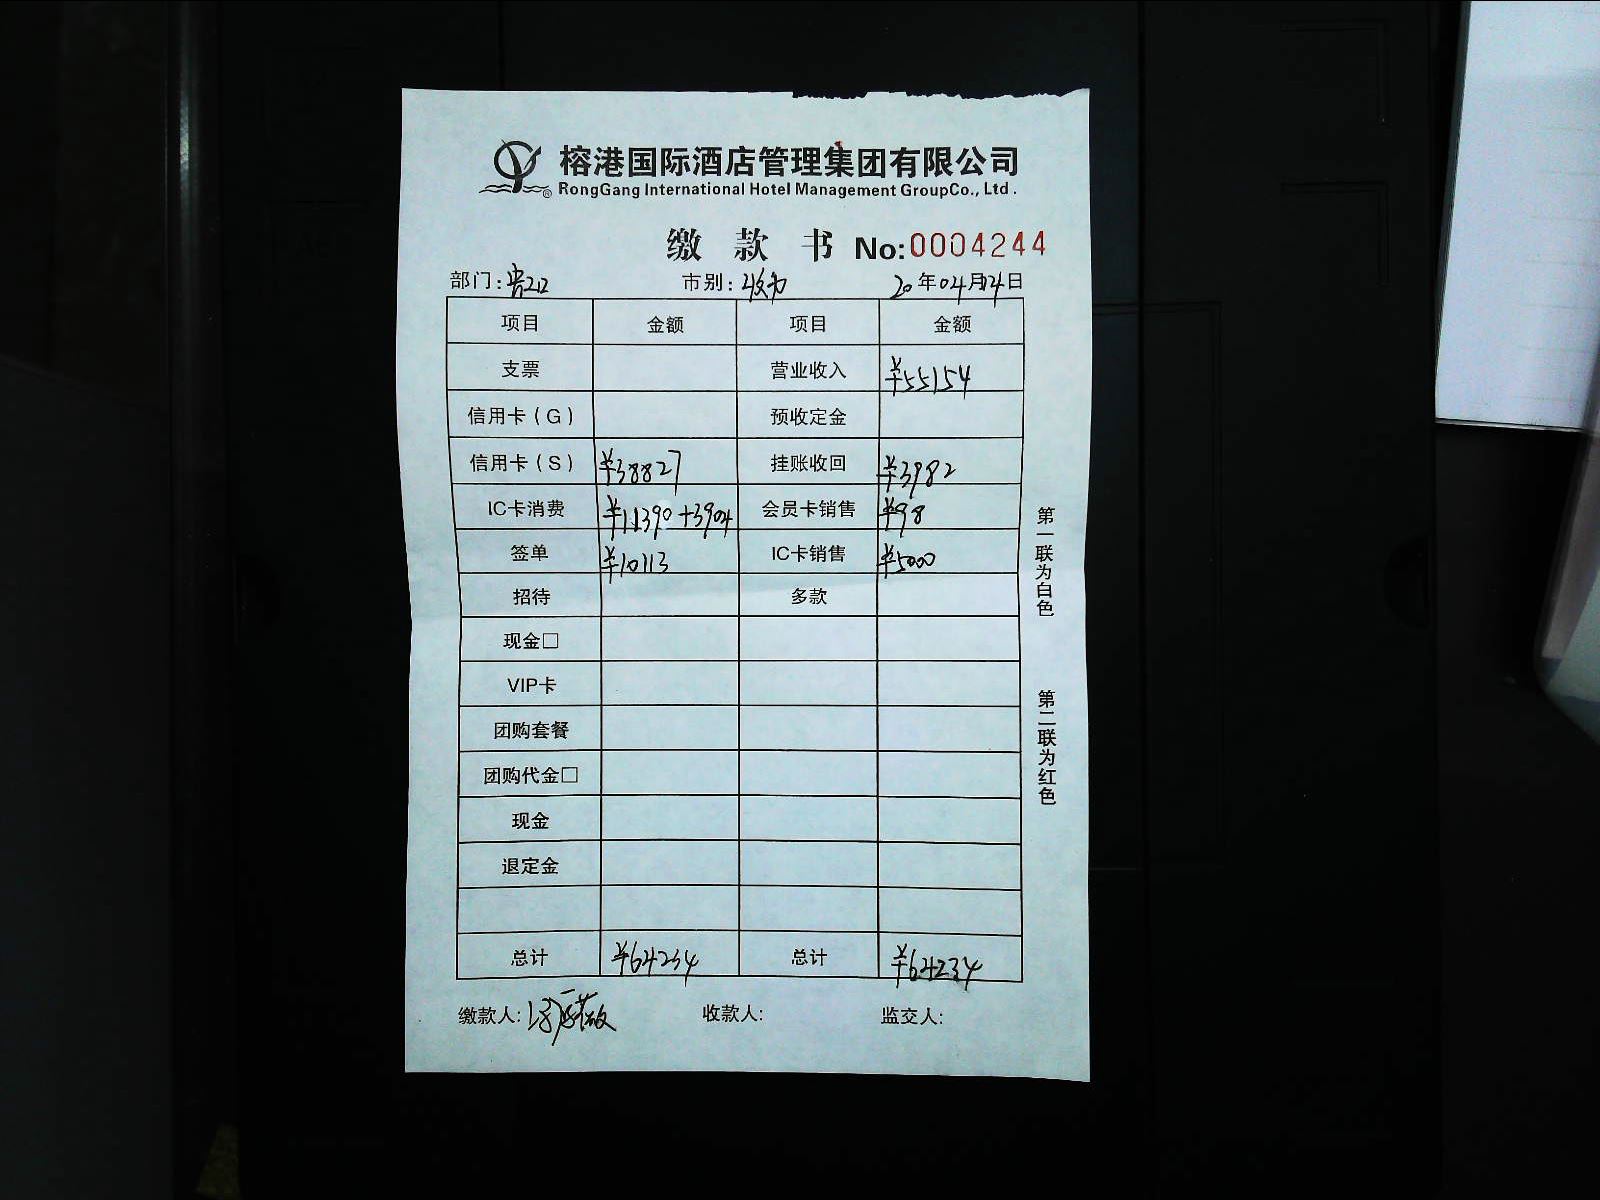 榕港国际酒店管理集团有限公司
RongGang International Hotel Management GroupCo., Ltd.
缴款书 No:0004244
部门: 市别: 20年04月24日
项目 金额 项目 金额
支票 营业收入 ¥55154
信用卡(G) 预收定金
信用卡(S) ¥38827 挂账收回 ¥3982
IC卡消费 ¥11390+3904 会员卡销售 ¥98
签单 ¥10113 IC卡销售 ¥5000
招待 多款
现金□
VIP卡
团购套餐
团购代金□
现金
退定金
总计 ¥64234 总计 ¥64234
缴款人: 收款人: 监交人:
第一联为白色
第二联为红色